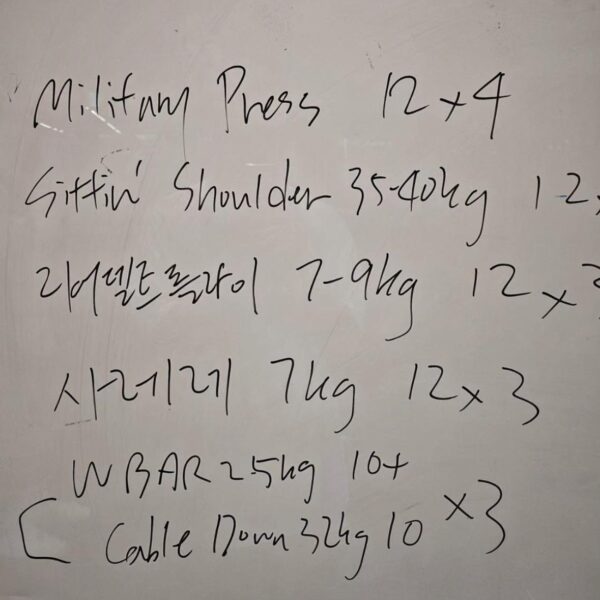 Military Press 12 x 4
Sittin' Shoulder 35-40kg 12x
리어델트플라이 7-9kg 12 x 3
사레레 7kg 12 x 3
W BAR 25kg 10+
Cable Down 32kg 10 x 3